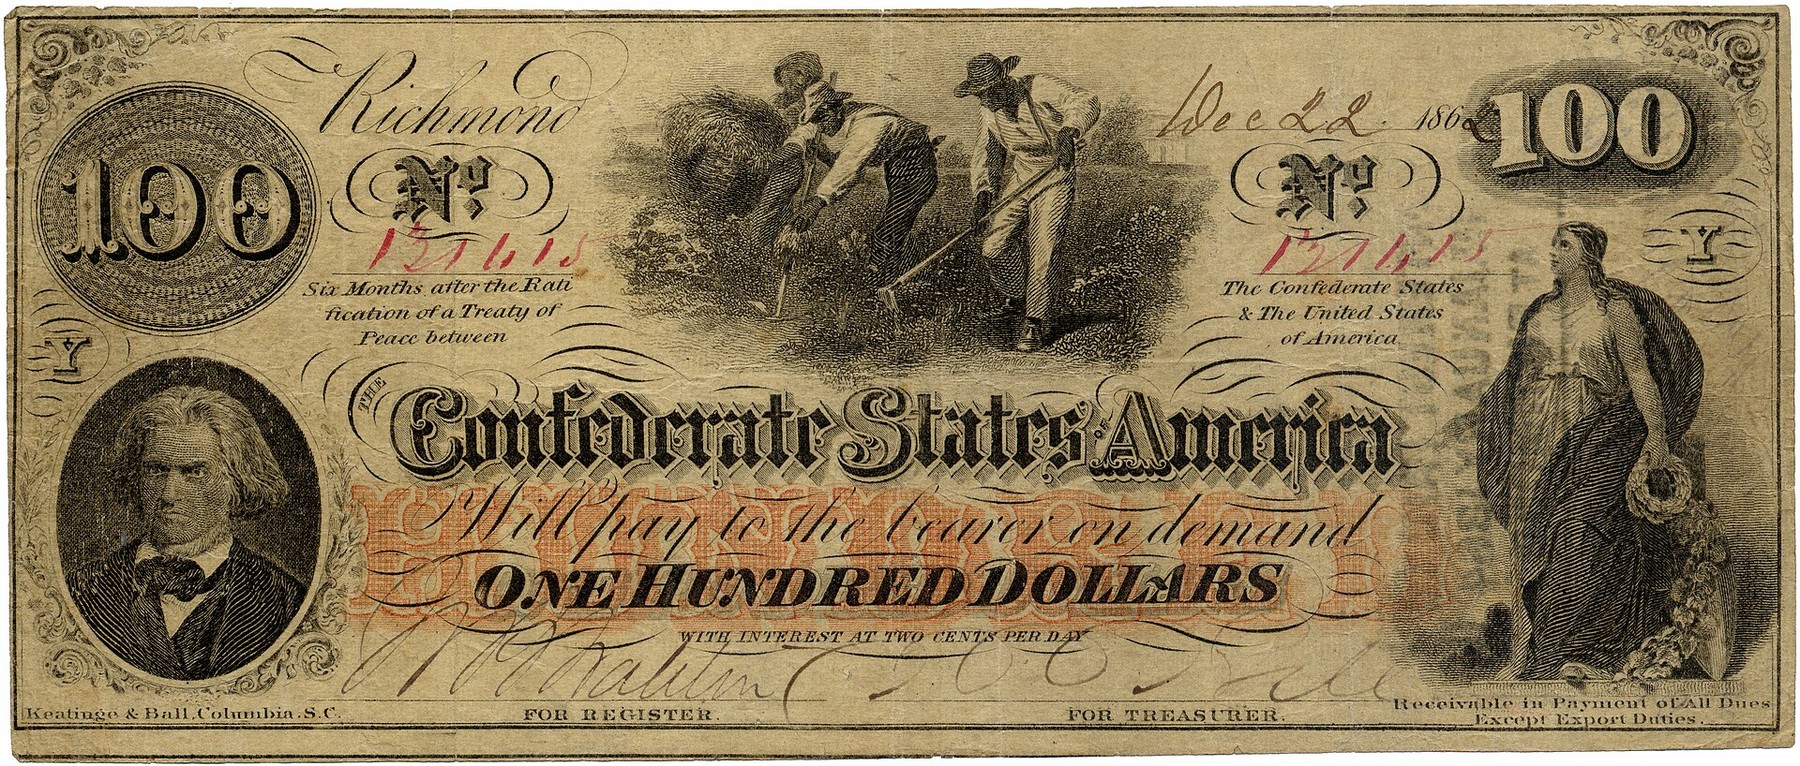 Richmond
Dec 22 1862
100
100
No.
No.
131615
131615
Six Months after the Rati
fication of a Treaty of
Peace between
The Confederate States
& The United States
of America
Y
Y
THE Confederate States OF America
HUNDRED
Will pay to the bearer on demand
ONE HUNDRED DOLLARS
WITH INTEREST AT TWO CENTS PER DAY
Keatinge & Ball, Columbia. S.C.
FOR REGISTER.
FOR TREASURER.
Receivable in Payment of All Dues
Except Export Duties.